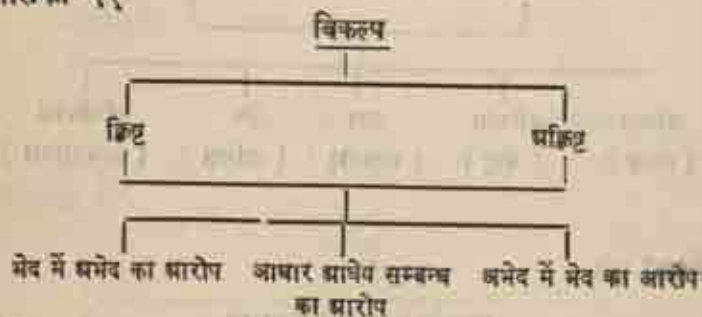 विकल्प
क्लिष्ट अक्लिष्ट
भेद में अभेद का आरोप आधार आधेय सम्बन्ध अभेद में भेद का आरोप
का आरोप